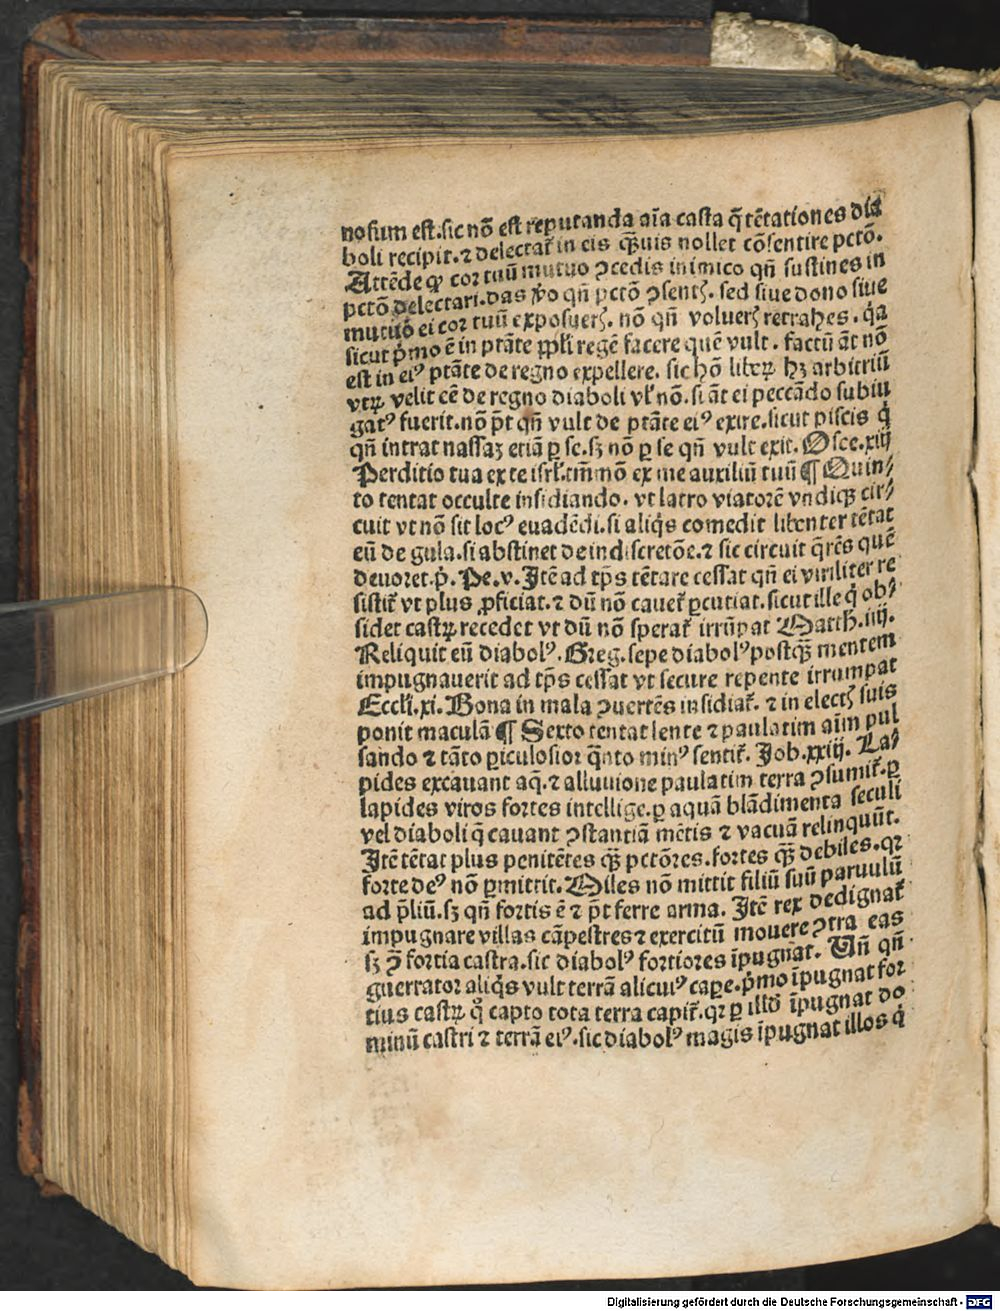 nosum est.sic nõ est reputanda aĩa casta q̃ tẽtationes dia
boli recipit.⁊ delectat᷑ in eis q̃uis nollet cõsentire pctõ.
Attẽde ꝙ cor tuũ mutuo ↄcedis inimico qñ sustines in
pctõ delectari.das v̾o qñ pctõ ↄsentꝭ. sed siue dono siue
mutuo ei cor tuũ exposuerꝭ. nõ qñ voluerꝭ retrahes. q̃a
sicut p̾mo ẽ in ptãte ppl̾i regẽ facere quẽ vult. factũ ãt nõ
est in eiꝰ ptãte de regno expellere. sic hõ libeꝝ hꝫ arbitriũ
vtꝝ velit eẽ de regno diaboli vl̾ nõ. si ãt ei peccãdo subiu
gatꝰ fuerit.nõ p̃t qñ vult de ptãte eiꝰ exire.sicut piscis q̇
qñ intrat nassaꝫ etiã ꝑ se.sꝫ nõ ꝑ se qñ vult exit. Osce.xiij
Perditio tua ex te isrl̾.tm̃ nõ ex me auxiliũ tuũ ¶ Quin⸗
to tentat occulte insidiando. vt latro viatorẽ vndiqꝫ cir⸗
cuit vt nõ sit locꝰ euadẽdi.si aliq̇s comedit libenter tẽtat
eũ de gula.si abstinet de indiscretõe.⁊ sic circuit q̃rẽs quẽ
deuoret.p̾. Pe.v. Itẽ ad tp̃s tẽtare cessat qñ ei viriliter re
sistit᷑ vt plus ꝓficiat.⁊ dũ nõ cauet᷑ ꝑcutiat.sicut ille q̇ ob⸗
sidet castꝝ recedet vt dũ nõ sperat᷑ irrũpat Matth.iiij.
Reliquit eũ diabolꝰ. Greg. sepe diabolꝰ postq̃ mentem
impugnauerit ad tp̃s cessat vt secure repente irrumpat
Eccl̾i.xi. Bona in mala ↄuertẽs insidiat᷑. ⁊ in electꝭ suis
ponit maculã ¶ Sexto tentat lente ⁊ paulatim aĩm pul
sando ⁊ tãto ꝑiculosior q̃nto minꝰ sentit᷑. Job.xxiij. La⸗
pides excauant aq̃.⁊ alluuione paulatim terra ↄsumit᷑.ꝑ
lapides viros fortes intellige.ꝑ aquã blãdimenta seculi
vel diaboli q̃ cauant ↄstantiã mẽtis ⁊ vacuã relinquũt.
Itẽ tẽtat plus penitẽtes q̃ pctõres.fortes q̃ debiles.qꝛ
forte deꝰ nõ ꝑmittit. Miles nõ mittit filiũ suũ paruulũ
ad p̃liũ.sꝫ qñ fortis ẽ ⁊ p̃t ferre arma. Itẽ rex dedignat᷑
impugnare villas cãpestres ⁊ exercitũ mouere ↄtra eas
sꝫ ↄ̃ fortia castra.sic diabolꝰ fortiores ĩpugnat. Uñ qñ
guerrator aliq̇s vult terrã alicuiꝰ caꝑe.p̾mo ĩpugnat for
tius castꝝ q̊ capto tota terra capit᷑.qꝛ ꝑ illd̾ ĩpugnat do
minũ castri ⁊ terrã eiꝰ.sic diabolꝰ magis ĩpugnat illos q̇
Digitalisierung gefördert durch die Deutsche Forschungsgemeinschaft - DFG